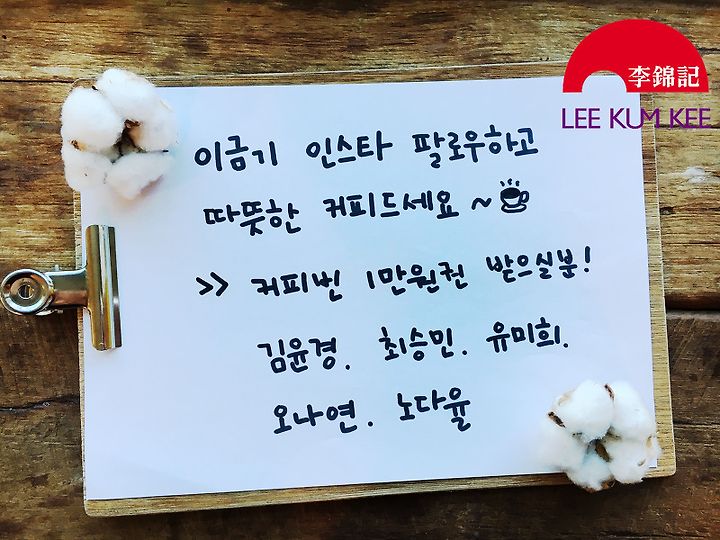 李錦記
LEE KUM KEE
이금기 인스타 팔로우하고
따뜻한 커피드세요~
>> 커피번 1만원권 받으실분!
김윤경. 최승민. 유미희.
오나연. 노다율